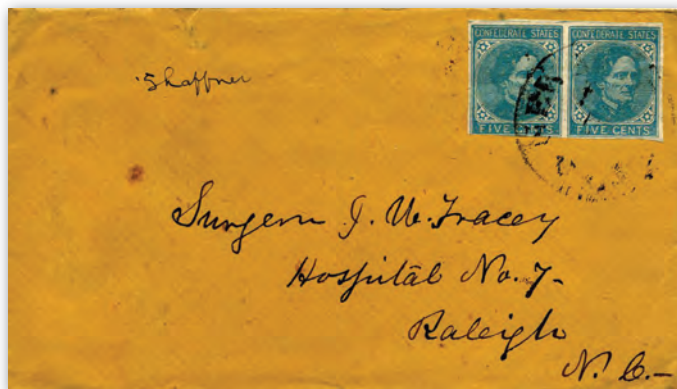 CONFEDERATE STATES CONFEDERATE STATES
FIVE CENTS FIVE CENTS
Shaffner
Surgeon J. W. Tracey
Hospital No. 7-
Raleigh
N. C.-